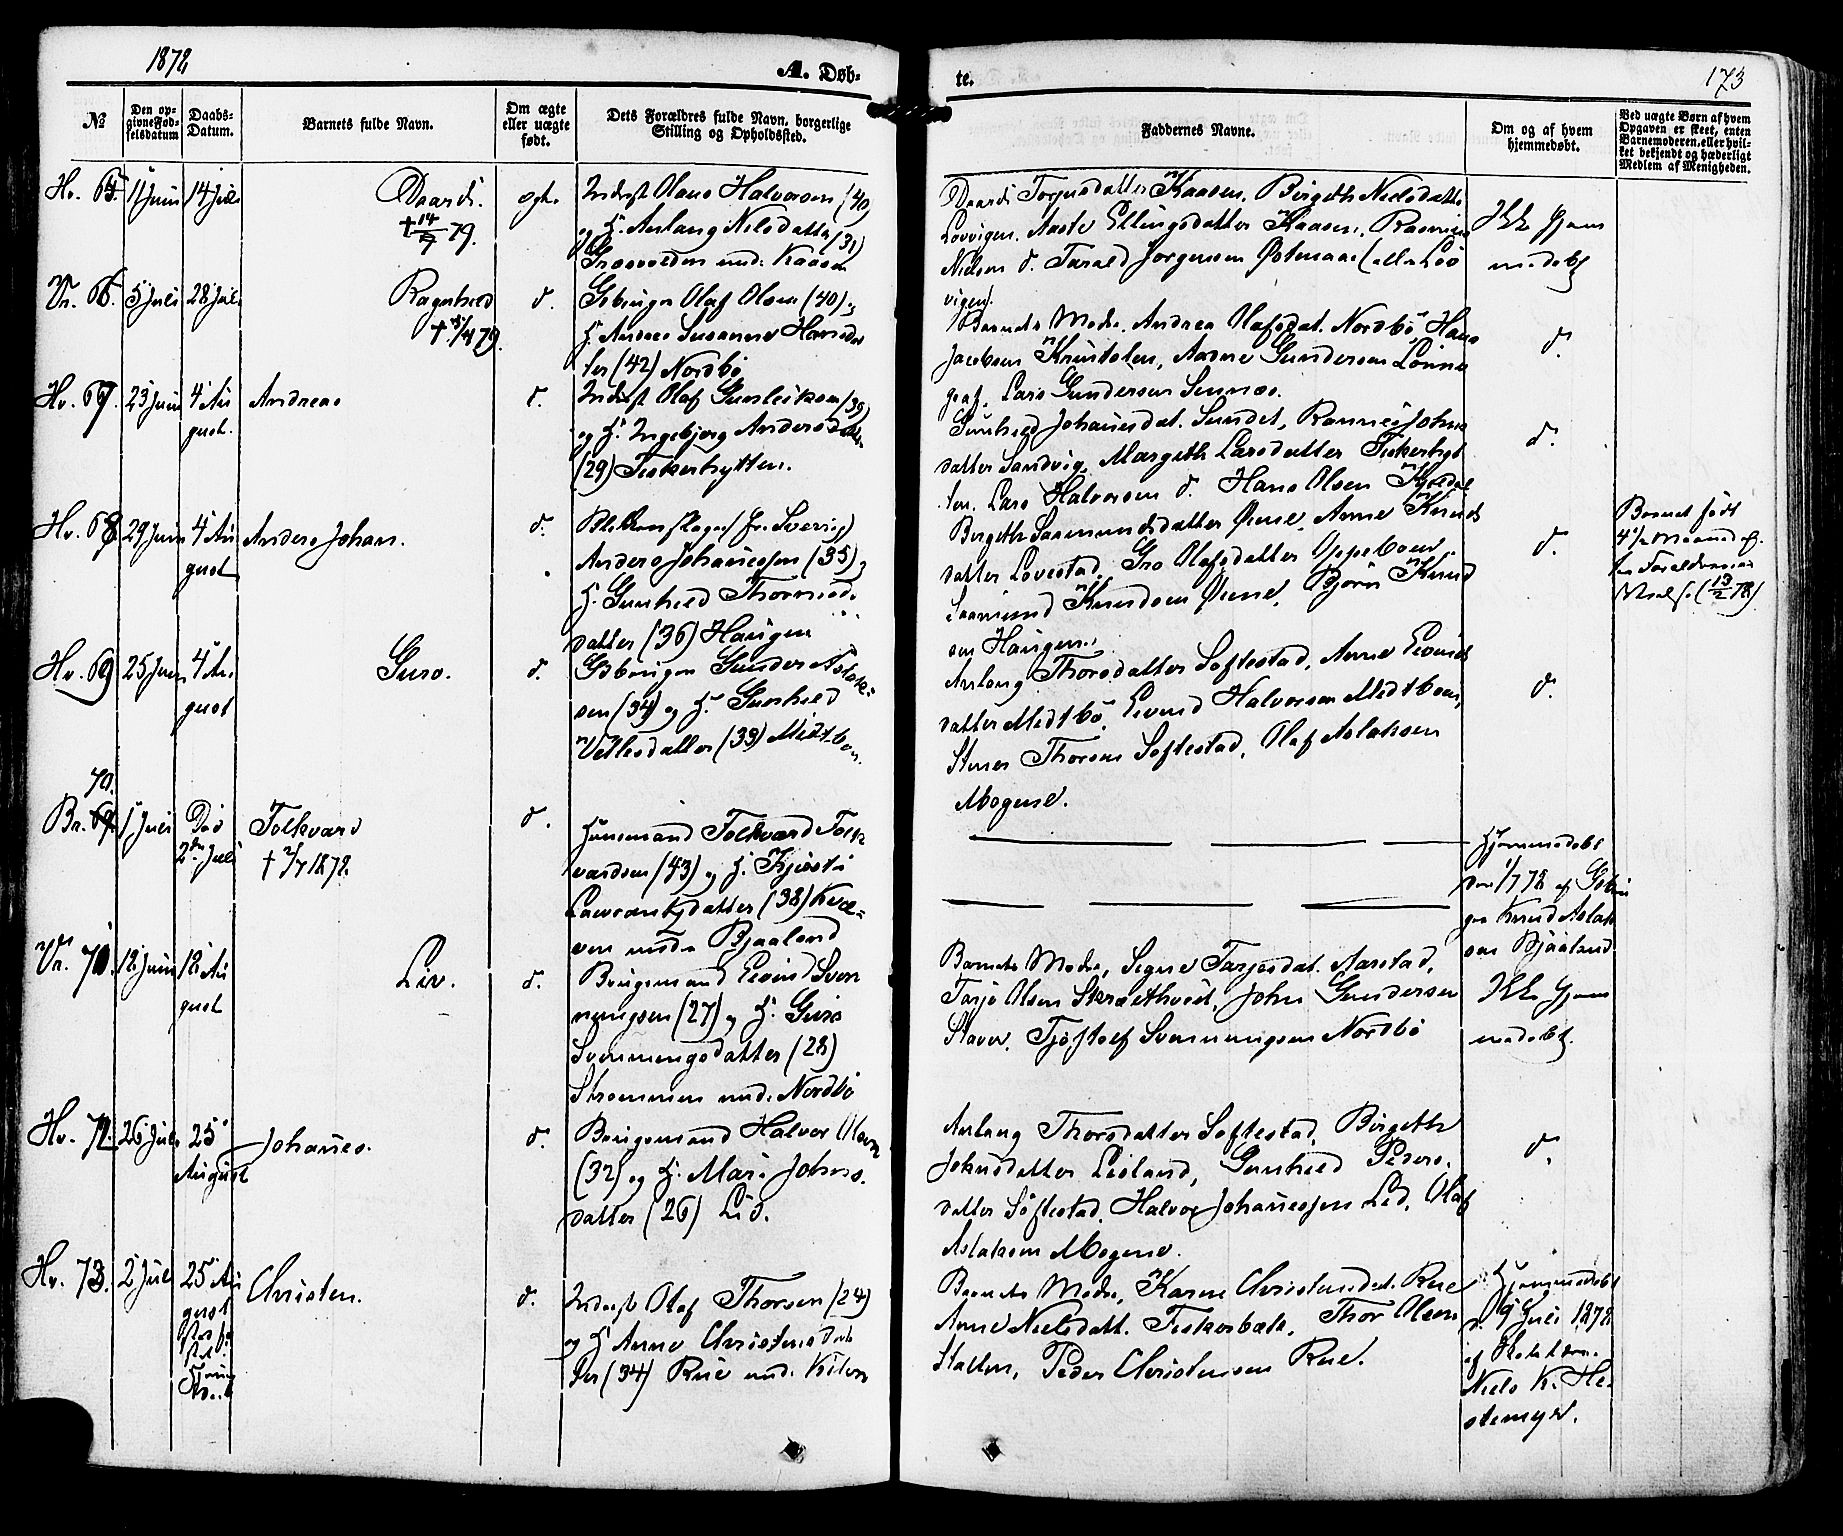 1878
A. Døb-
te.
173
№
Den op-
givne Fød-
selsdatum
Daabs-
Datum.
Barnets fulde Navn.
Om ægte
eller uægte
født.
Dets Forældres fulde Navn, borgerlige
Stilling og Opholdssted.
Faddernes Navne.
Om og af hvem
hjemmedøbt.
Ved uægte Børn af hvem
Opgaven er skeet, enten
Barnemoderen, eller hvil-
ket bekjendt og hæderligt
Medlem af Menigheden.
Hv. 65. 11 Juni 14 Juli
Daardi.
† 14/9 79.
ægte
Inderst Olaus Halvorsen (40)
og H. Anlaug Nilsdatter (31)
Græsvolden und. Kaasen
Daardi Torjusdatter Kaasen, Birgithe Nielsdatter
Lovvigen, Aaste Ellingsdatter Kaasen, Rasmus
Nielsen d. Tarald Jørgensen Østenaae (alle Lov
vigen).
Ikke hjem
medøbt
Vr. 66. 5 Juli 28 Juli
Ragnhild
d.
Gbruger Olaf Olsen (40) og
H. Andrea Susanne Hansdat
ter (42) Nordbö
Barnets Moder, Andrea Olafsdat. Nordbö, Hans
Jacobsen, Aadne Gundersen Lönne
graf, Lars Gundersen Sunnæs.
d.
Hv. 67. 23 Juni 4 Au
gust.
Andreas
d.
Inderst Olaf Gunleiksen (39)
og H. Ingebjørg Andersdatter
(29) Fiskerhytten.
Gunhild Johannesdat. Sundet, Rannei Johns
datter Sandvig, Margith Larsdatter Fiskerhyt
ten, Lars Halvorsen d. Hans Olsen
d.
Hv. 68. 29 Juni 4 Au
gust
Anders Johan.
d.
(fr. Sverig)
Anders Johannessen (35) og
H. Gunhild
datter (36) Haugen
Birgith Saamundsdatter Øine, Anne Knuds
datter Lovestad, Gro Olafsdatter Oppeboen
Saamund Knudsen Øine, Bjørn Knud
sen Haugen.
d.
Barnet født
4½ Maaned ef
ter Forældrenes
Vielse (13/2 78)
Hv. 69 25 Juni 4 Au
gust
Guro.
d.
Gbruger Gunder Aslak-
sen (34) og H. Gunhild
Vetlesdatter (33) Midtboen.
Anlaug Thorsdatter Softestad, Anne Eivinds
datter Midtbö, Eivind Halvorsen Midtboen,
Stener Thorsen Softestad, Olaf Aslaksen
Mogene.
d.
70.
Br. 69. 1 Juli Död
2den Juli
Folkvard
† 2/7 1878.
d.
Huusmand Folkvard Folk
vardsen (43) og H. Kjersti
Lavrantzdatter (38) Kvæ-
ven under Bjaaland
Hjemmedøbt
den 1/7 78 af Gbru
ger Knud Aslak
sen Bjaaland
Vr. 71. 12 Juni 12 Au
gust
Liv.
d.
Brugsmand Eivind Sven
nungsen (27) og H. Guro
Svenningsdatter (28)
Strømmen und. Nordbö
Barnets Moder, Signe Tarjesdat. Aarstad,
Tarjé Olsen Skræithveit, John Gundersen
Staver, Tjöstolf Svenningsen Nordbö
Ikke hjem
medøbt.
Hv. 72. 26 Juli 25
August
Johannes.
d.
Brugsmand Halvor Olsen
(32) og H. Mari Johns.
datter (26) Lid.
Anlaug Thorsdatter Softestad, Birgith
Johnsdatter Lisland, Gunhild Peders.
datter Söftestad, Halvor Johannessen Lid, Olaf
Aslaksen Mogene.
d.
Hv. 73. 2 Juli 25 Au
gust
Christen.
d.
Inderst Olaf Thorsen (24)
og H. Anne Christensdat
ter (34) Rue und. Kilen
Barnets Moder, Karen Christensdat. Rue
Anne Nielsdatt. Fiskerbæk, Thor Olsen
Hatten, Peder Christensen Rue.
Hjemmedøbt
d. 9 Juli 1878
af Skolelærer
Niels K. He-
stemyr.